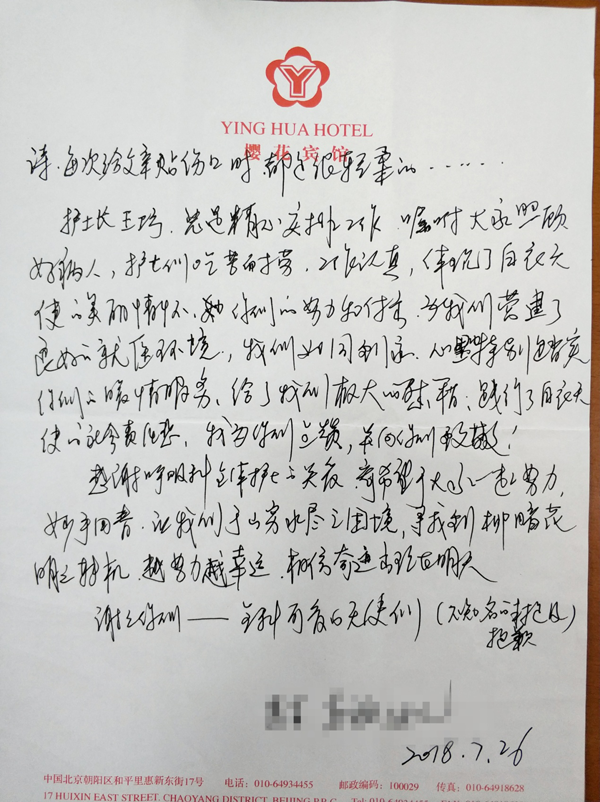 YING HUA HOTEL
樱花宾馆
诗.每次给文章贴伤口时,都是很轻柔的……
护士长王巧.总是精心安排工作 嘱咐大家照顾
好病人,护士们吃苦耐劳.工作认真,体现了白衣天
使的美丽情怀.你们的努力和付出.为我们营造了
良好的就医环境.,我们如同到家.心里特别踏实
你们的暖情服务.给了我们极大的慰藉;践行了白衣天
使的社会责任感.我为你们点赞,并向你们致敬!
感谢呼吸科全体护士的关爱 寄希望于大家一起努力,
妙手回春.让我们于山穷水尽之困境,寻找到柳暗花
明之转机.越努力越幸运.相信奇迹出现在明天
谢谢你们——全科可爱的天使们(不知名的未提及
抱歉)
2018.7.26
中国北京朝阳区和平里惠新东街17号 电话:010-64934455 邮政编码:100029 传真:010-64918628
17 HUIXIN EAST STREET, CHAOYANG DISTRICT, BEIJING P.R.C.